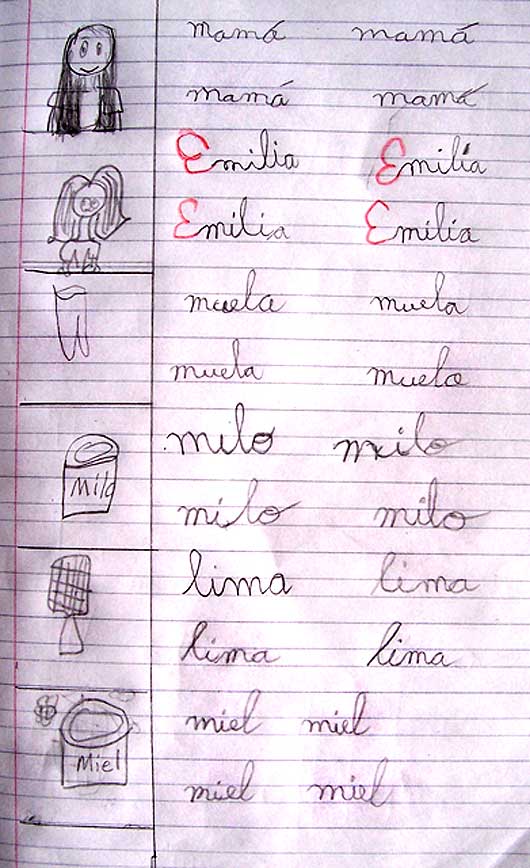 mamá mamá
mamá mamá
Emilia Emilia
Emilia Emilia
muela muela
muela muela
milo milo
Milo
milo milo
lima lima
lima lima
miel miel
Miel
miel miel